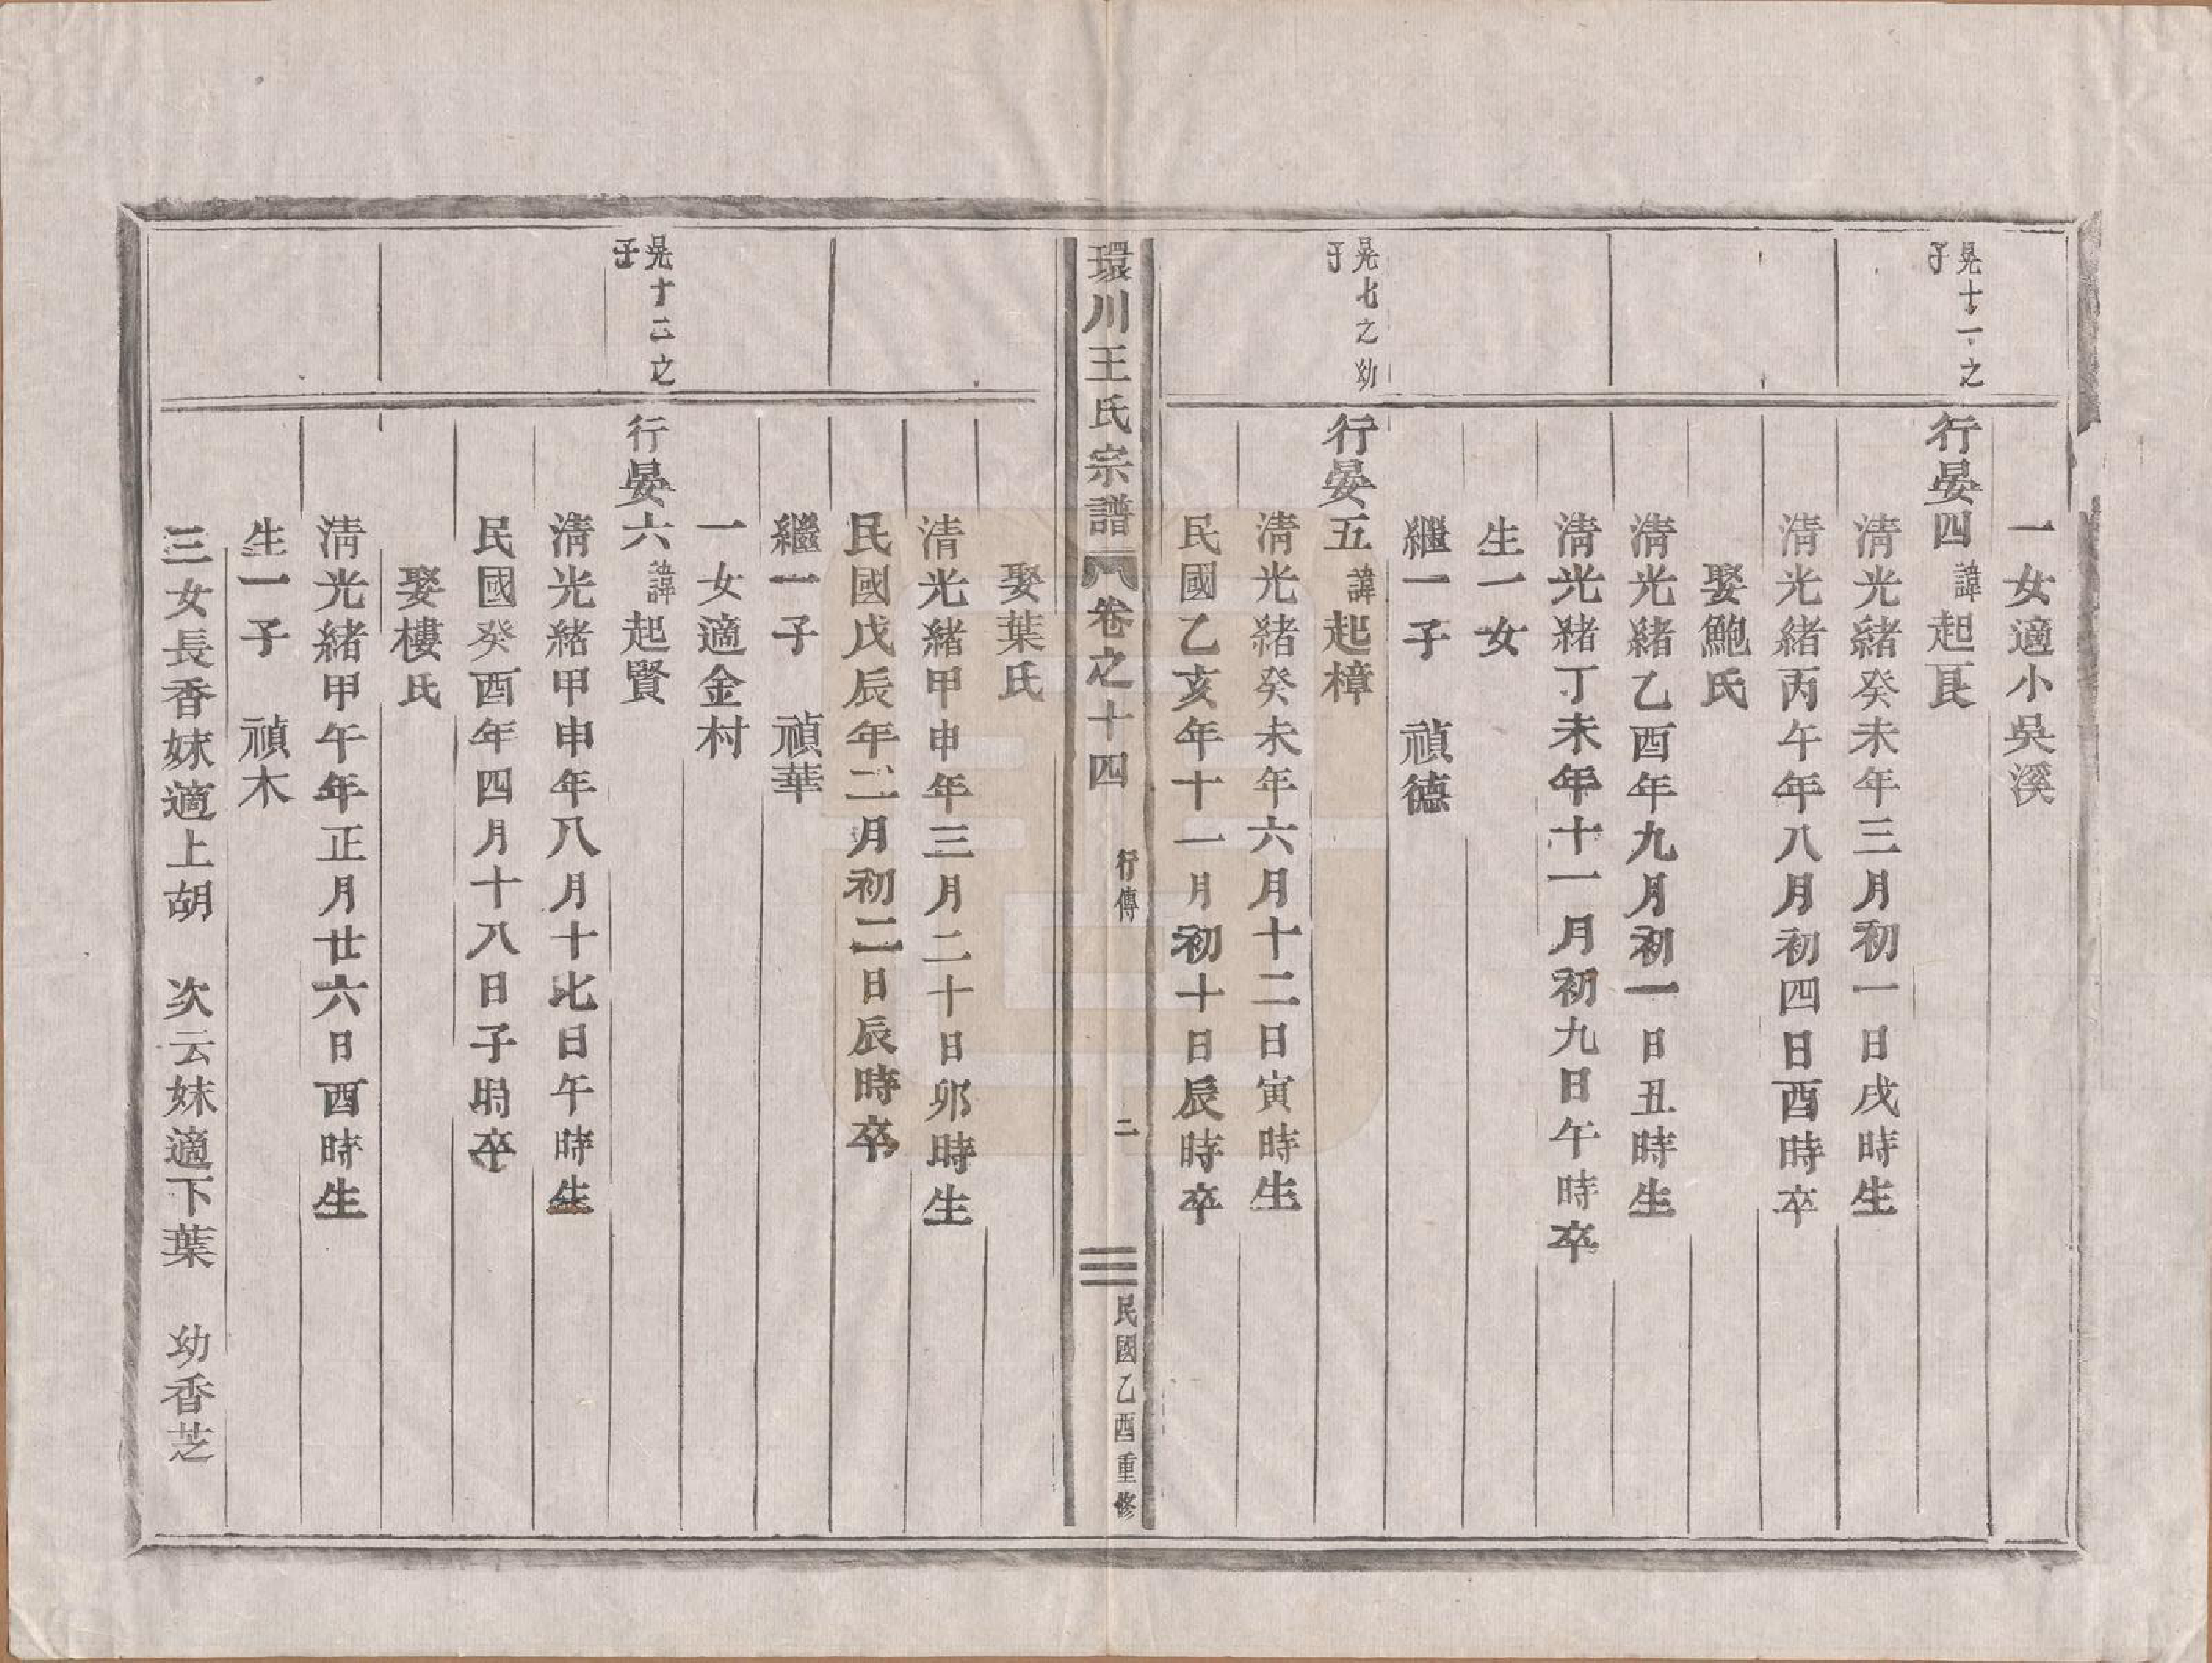 一女適小吳溪
晃十一之
子
行晏四諱起良
清光緒癸未年三月初一日戌時生
清光緒丙午年八月初四日酉時卒
娶鮑氏
清光緒乙酉年九月初一日丑時生
清光緒丁未年十一月初九日午時卒
生一女
繼一子 禎德
晃七之幼
子
行晏五諱起樟
清光緒癸未年六月十二日寅時生
民國乙亥年十一月初十日辰時卒
環川王氏宗譜 卷之十四 行傳 二 民國乙酉重修
娶葉氏
清光緒甲申年三月二十日卯時生
民國戊辰年二月初二日辰時卒
繼一子 禎華
一女適金村
晃十二之
子
行晏六諱起賢
清光緒甲申年八月十七日午時生
民國癸酉年四月十八日子時卒
娶樓氏
清光緒甲午年正月廿六日酉時生
生一子 禎木
三女長香妹適上胡 次云妹適下葉 幼香芝